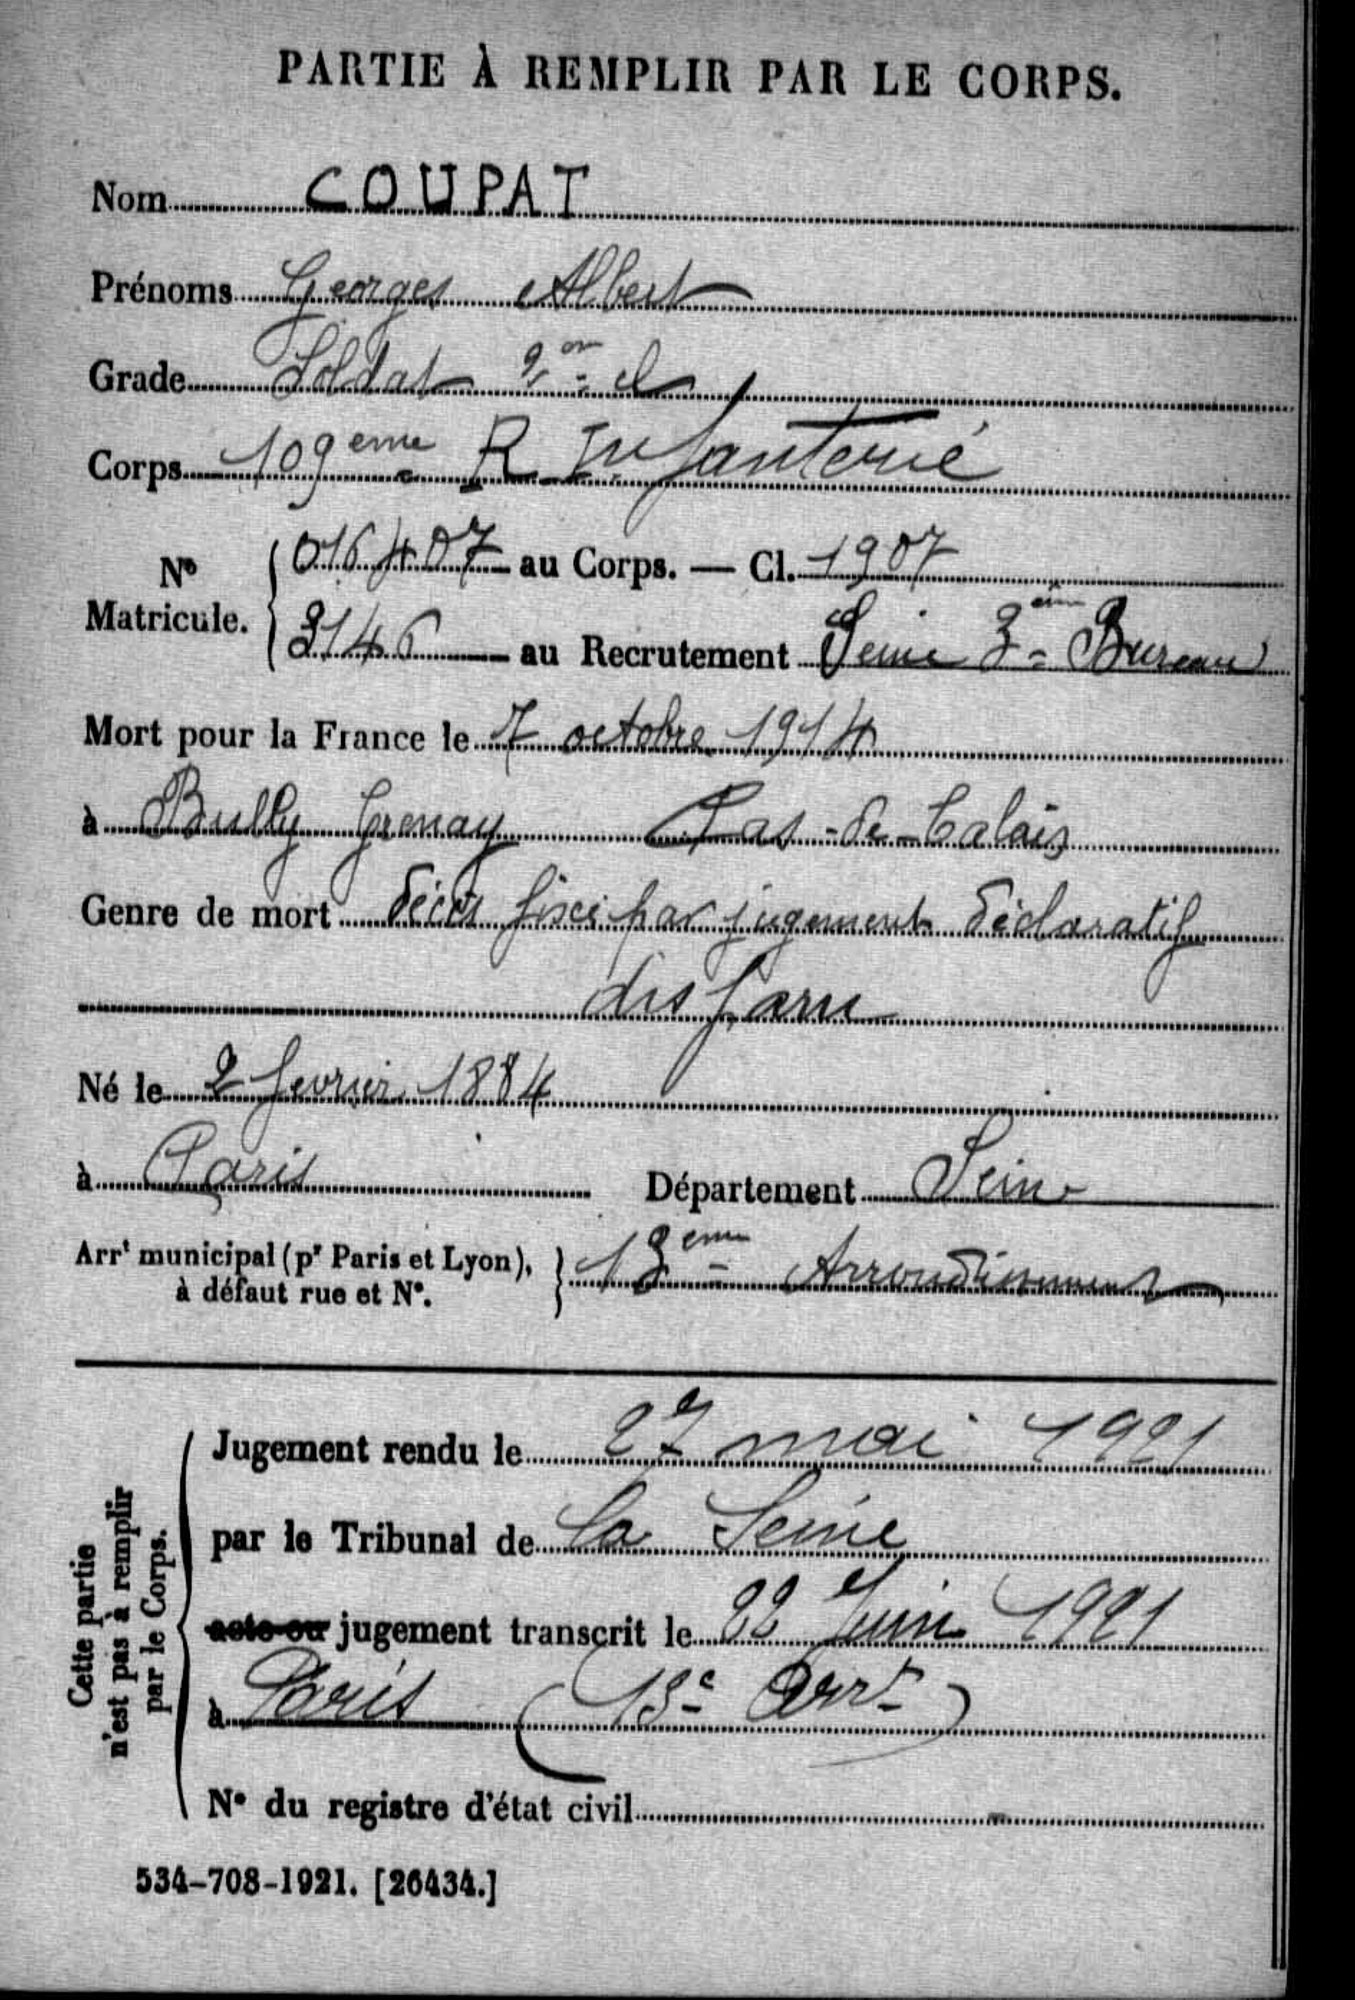 PARTIE À REMPLIR PAR LE CORPS.
Nom COUPAT
Prénoms Georges Albert
Grade Soldat 2e cl
Corps 109eme R Infanterie
No Matricule. 016407 au Corps. — Cl. 1907
3146 au Recrutement Seine 3eme Bureau
Mort pour la France le 7 octobre 1914
à Bully Grenay Pas-de-Calais
Genre de mort décès fixé par jugement déclaratif
disparu
Né le 2 fevrier 1884
à Paris Département Seine
Arrt municipal (pr Paris et Lyon), à défaut rue et No. 13eme Arrondissement
Cette partie n'est pas à remplir par le Corps.
Jugement rendu le 27 mai 1921
par le Tribunal de la Seine
acte ou jugement transcrit le 22 Juin 1921
à Paris (13e Arrt)
No du registre d'état civil
534-708-1921. [26434.]